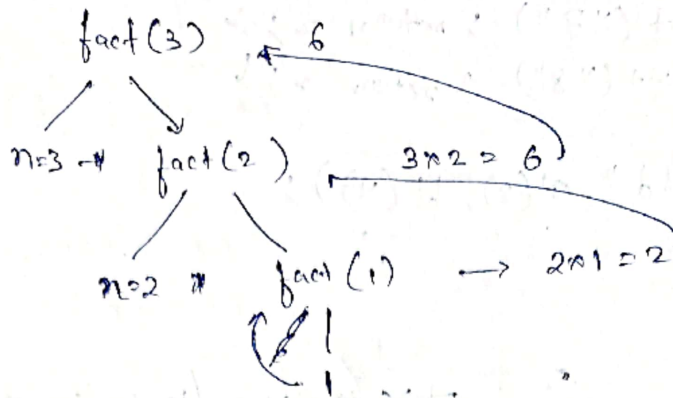 fact(3) 6
n=3 * fact(2) 3*2 = 6
n=2 * fact(1) → 2*1 = 2
1